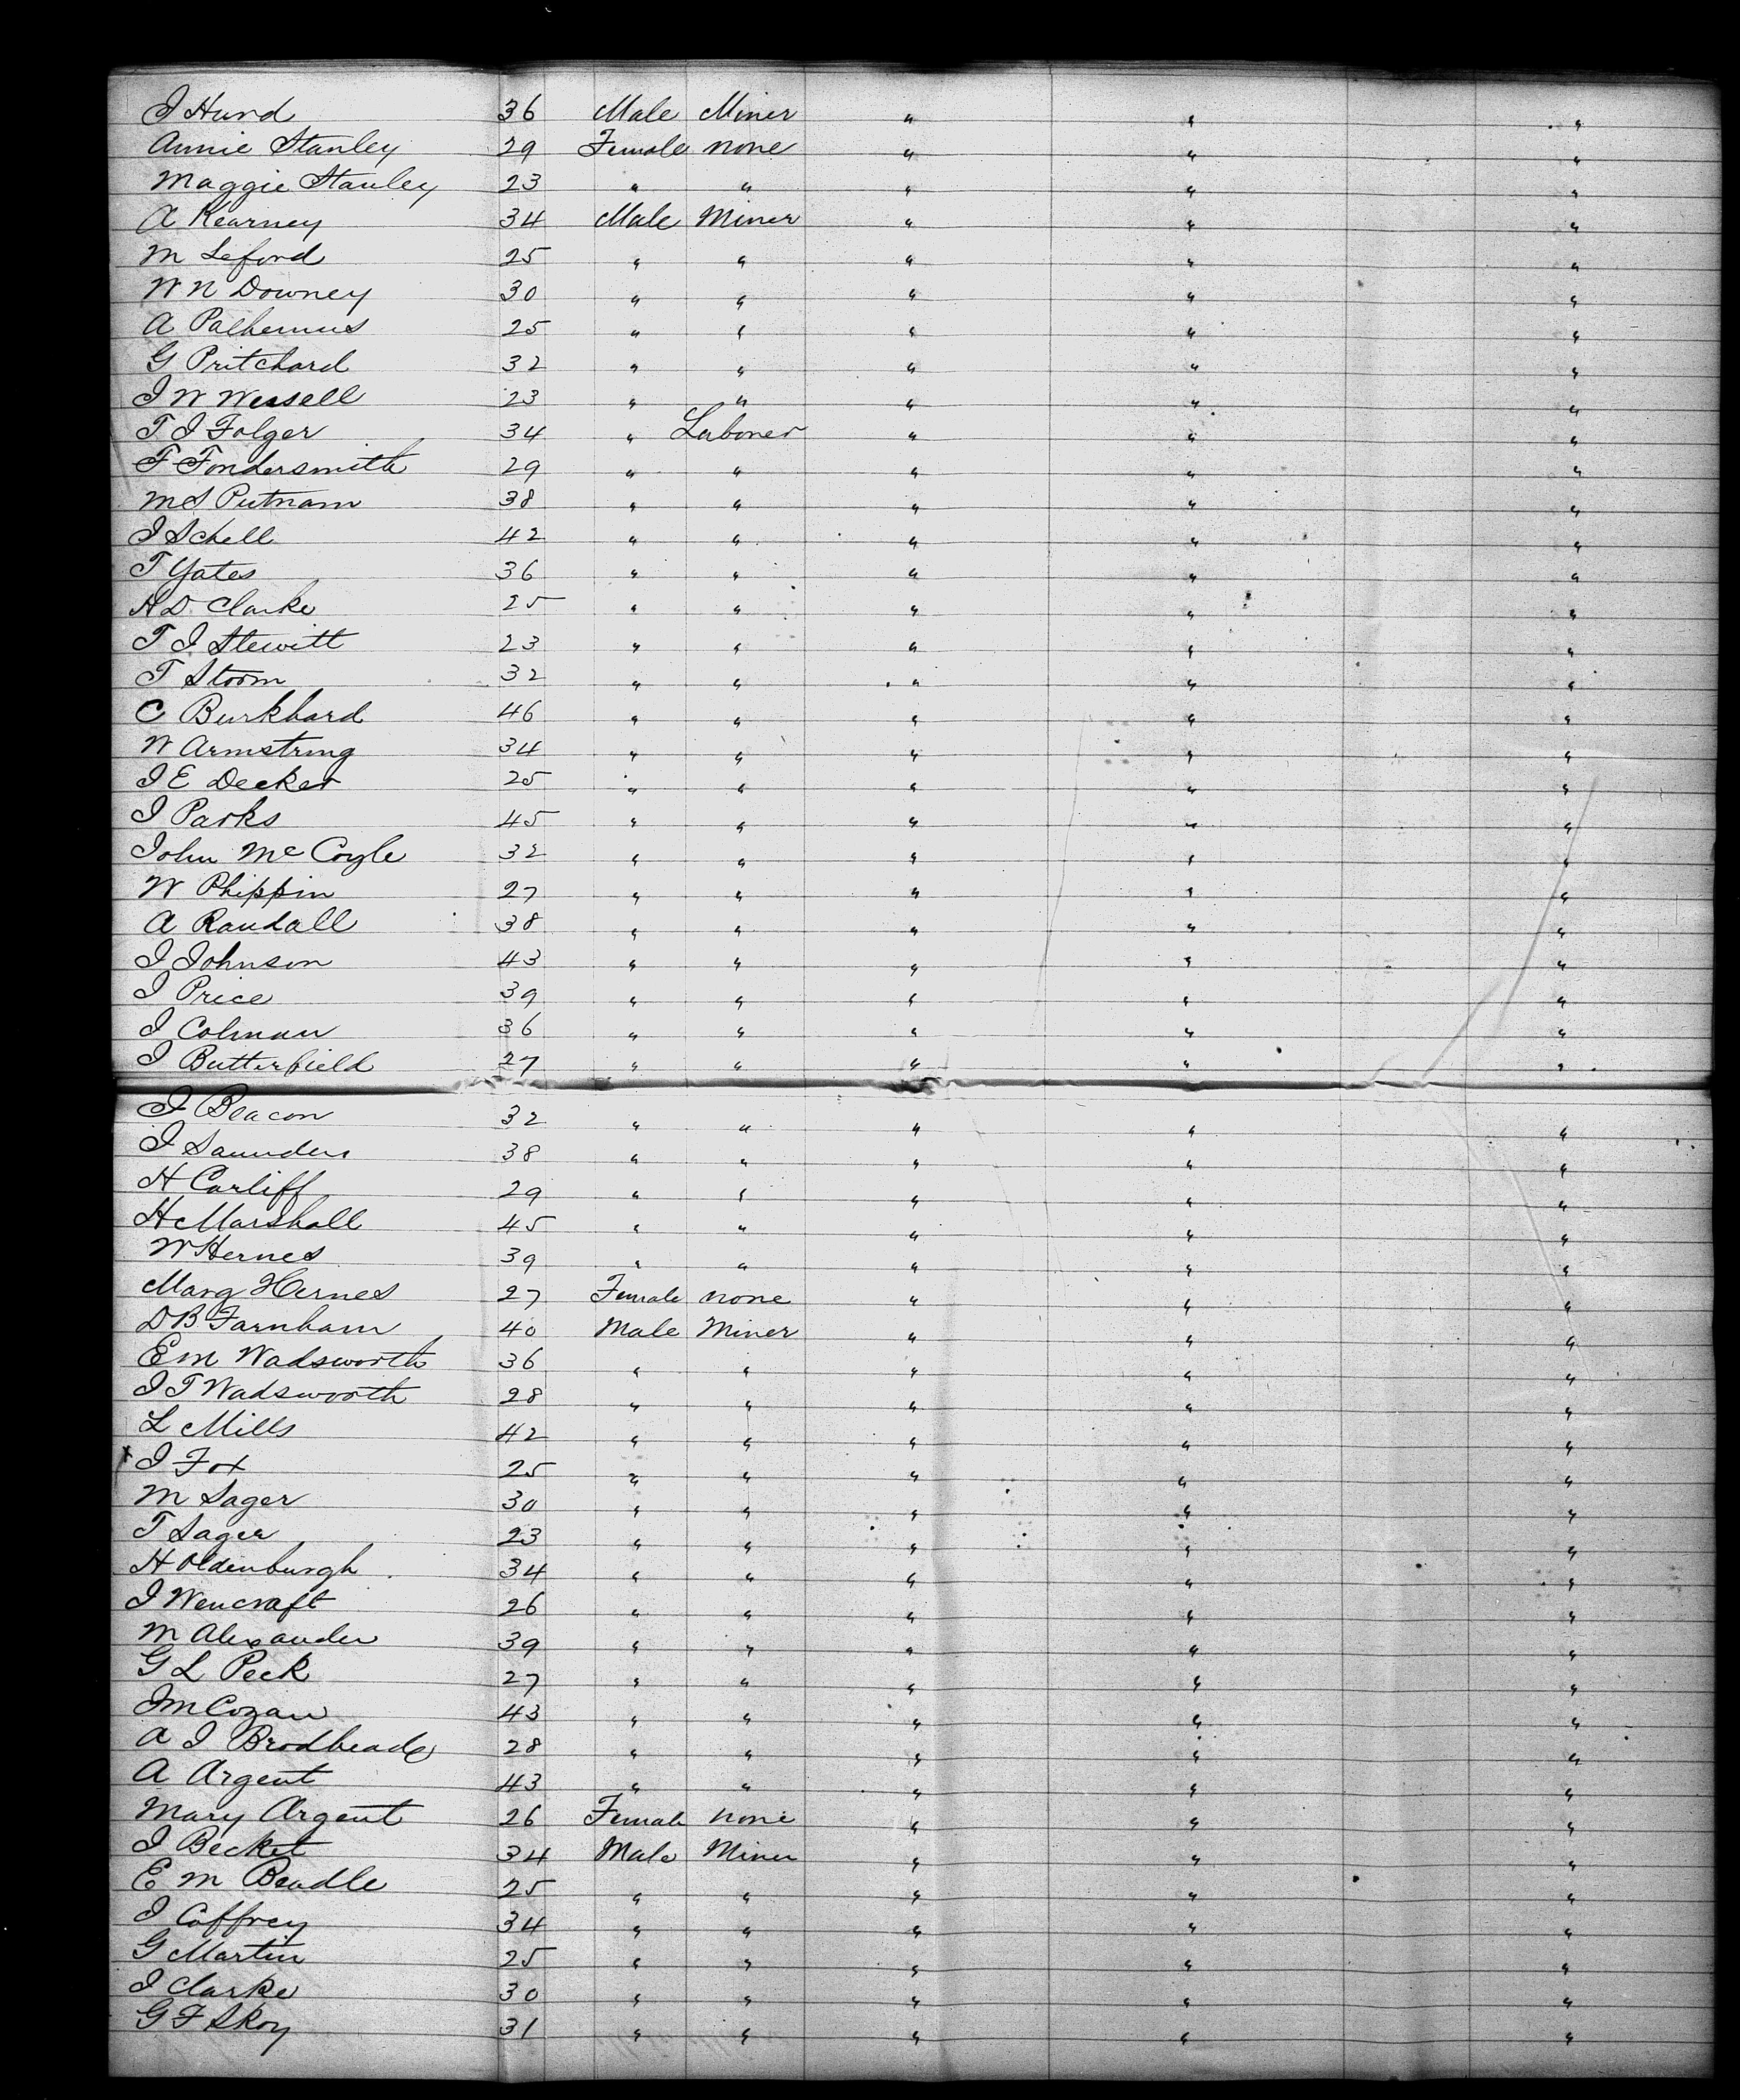 J Hurd 36 Male Miner " " "
Annie Stanley 29 Female none " " "
Maggie Stanley 23 " " " " "
A Kearney 34 Male Miner " " "
M Leford 25 " " " " "
W N Downey 30 " " " " "
A Palhemus 25 " " " " "
G Pritchard 32 " " " " "
J W Wessell 23 " " " " "
T J Folger 34 " Laborer " " "
F Fondersmith 29 " " " " "
M S Putnam 38 " " " " "
J Schell 42 " " " " "
T Yates 36 " " " " "
H D Clarke 25 " " " " "
T J Stewitt 23 " " " " "
T Storm 32 " " " " "
C Burkhard 46 " " " " "
W Armstrong 34 " " " " "
J E Decker 25 " " " " "
J Parks 45 " " " " "
John McCoyle 32 " " " " "
W Phippin 27 " " " " "
A Randall 38 " " " " "
J Johnson 43 " " " " "
J Price 39 " " " " "
J Colman 36 " " " " "
J Butterfield 27 " " " " "
J Beacon 32 " " " " "
J Saunders 38 " " " " "
H Carliff 29 " " " " "
H Marshall 45 " " " " "
W Hernes 39 " " " " "
Marg Hernes 27 Female none " " "
D B Farnham 40 Male Miner " " "
E M Wadsworth 36 " " " " "
J T Wadsworth 28 " " " " "
L Mills 42 " " " " "
x J Fox 25 " " " " "
M Sager 30 " " " " "
T Sager 23 " " " " "
H Oldenburgh 34 " " " " "
J Wencraft 26 " " " " "
M Alexander 39 " " " " "
G L Peck 27 " " " " "
J M Cozan 43 " " " " "
A J Brodheade 28 " " " " "
A Argent 43 " " " " "
Mary Argent 26 Female none " " "
J Becket 34 Male Miner " " "
E M Beadle 25 " " " " "
J Caffrey 34 " " " " "
G Martin 25 " " " " "
J Clarke 30 " " " " "
G F Skoy 31 " " " " "